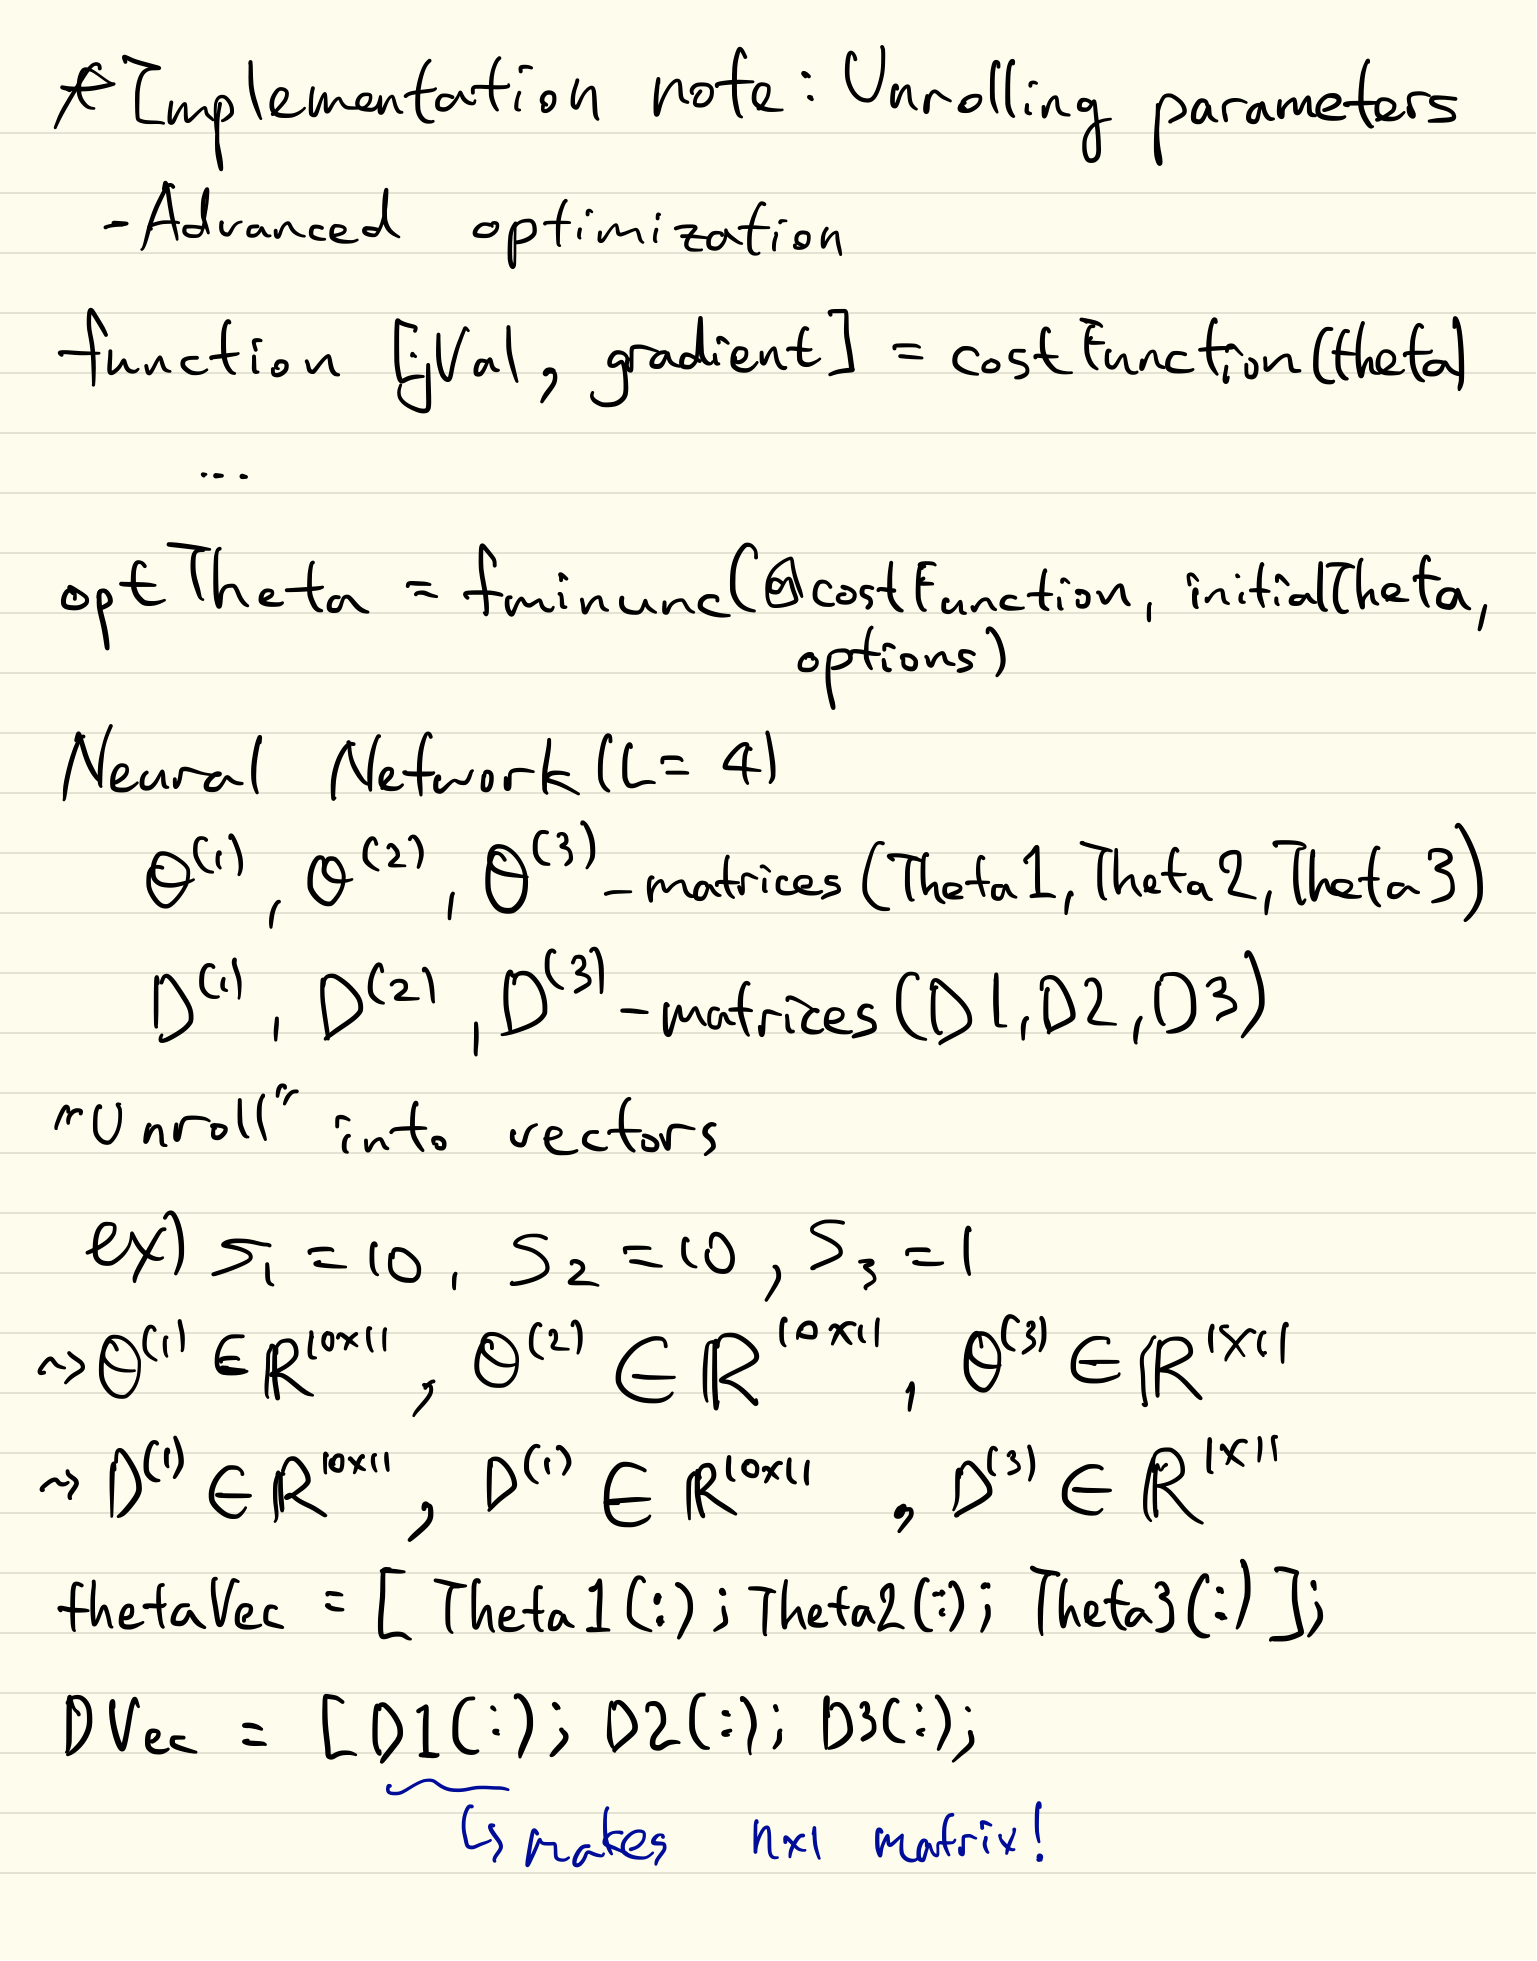 * Implementation note: Unrolling parameters
- Advanced optimization
function [jVal, gradient] = costFunction(theta)
...
optTheta = fminunc(@costFunction, initialTheta,
options)
Neural Network (L = 4)
Θ⁽¹⁾, Θ⁽²⁾, Θ⁽³⁾ - matrices (Theta1, Theta2, Theta3)
D⁽¹⁾, D⁽²⁾, D⁽³⁾ - matrices (D1, D2, D3)
"Unroll" into vectors
ex) S₁ = 10, S₂ = 10, S₃ = 1
⇝ Θ⁽¹⁾ ∈ ℝ^10×11, Θ⁽²⁾ ∈ ℝ^10×11, Θ⁽³⁾ ∈ ℝ^1×11
⇝ D⁽¹⁾ ∈ ℝ^10×11, D⁽¹⁾ ∈ ℝ^10×11, D⁽³⁾ ∈ ℝ^1×11
thetaVec = [Theta1(:); Theta2(:); Theta3(:)];
DVec = [D1(:); D2(:); D3(:);
↳ makes n×1 matrix!